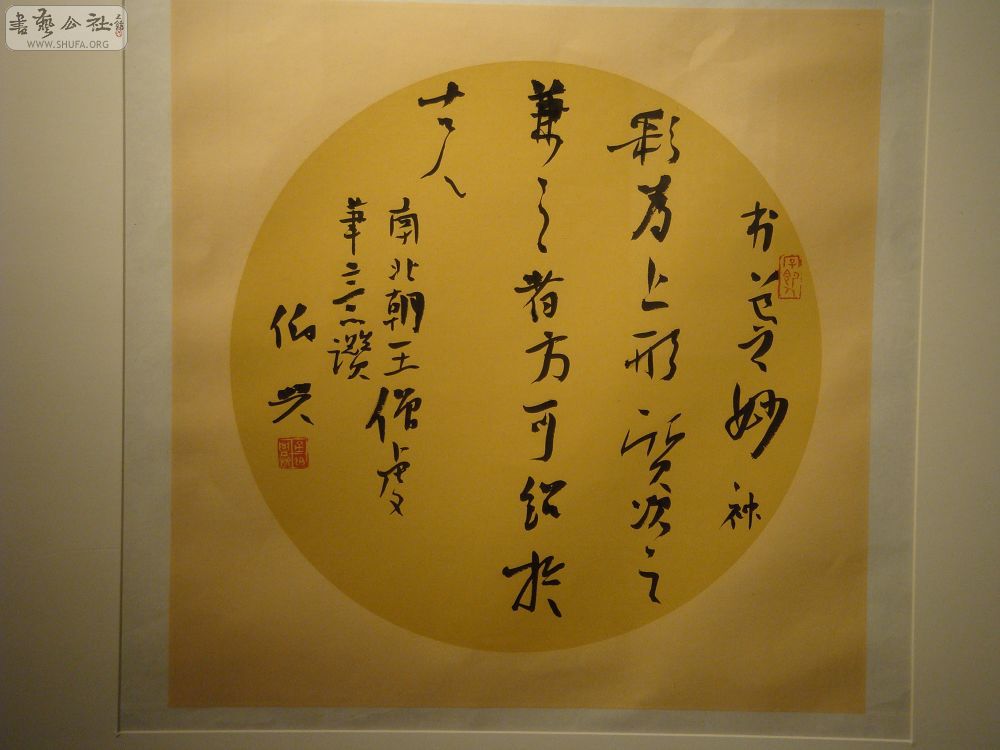 書藝公社
WWW.SHUFA.ORG
书道之妙神
彩為上形質次之
兼之者方可紹於
古人
南北朝王僧虔
筆意讚
伯兴